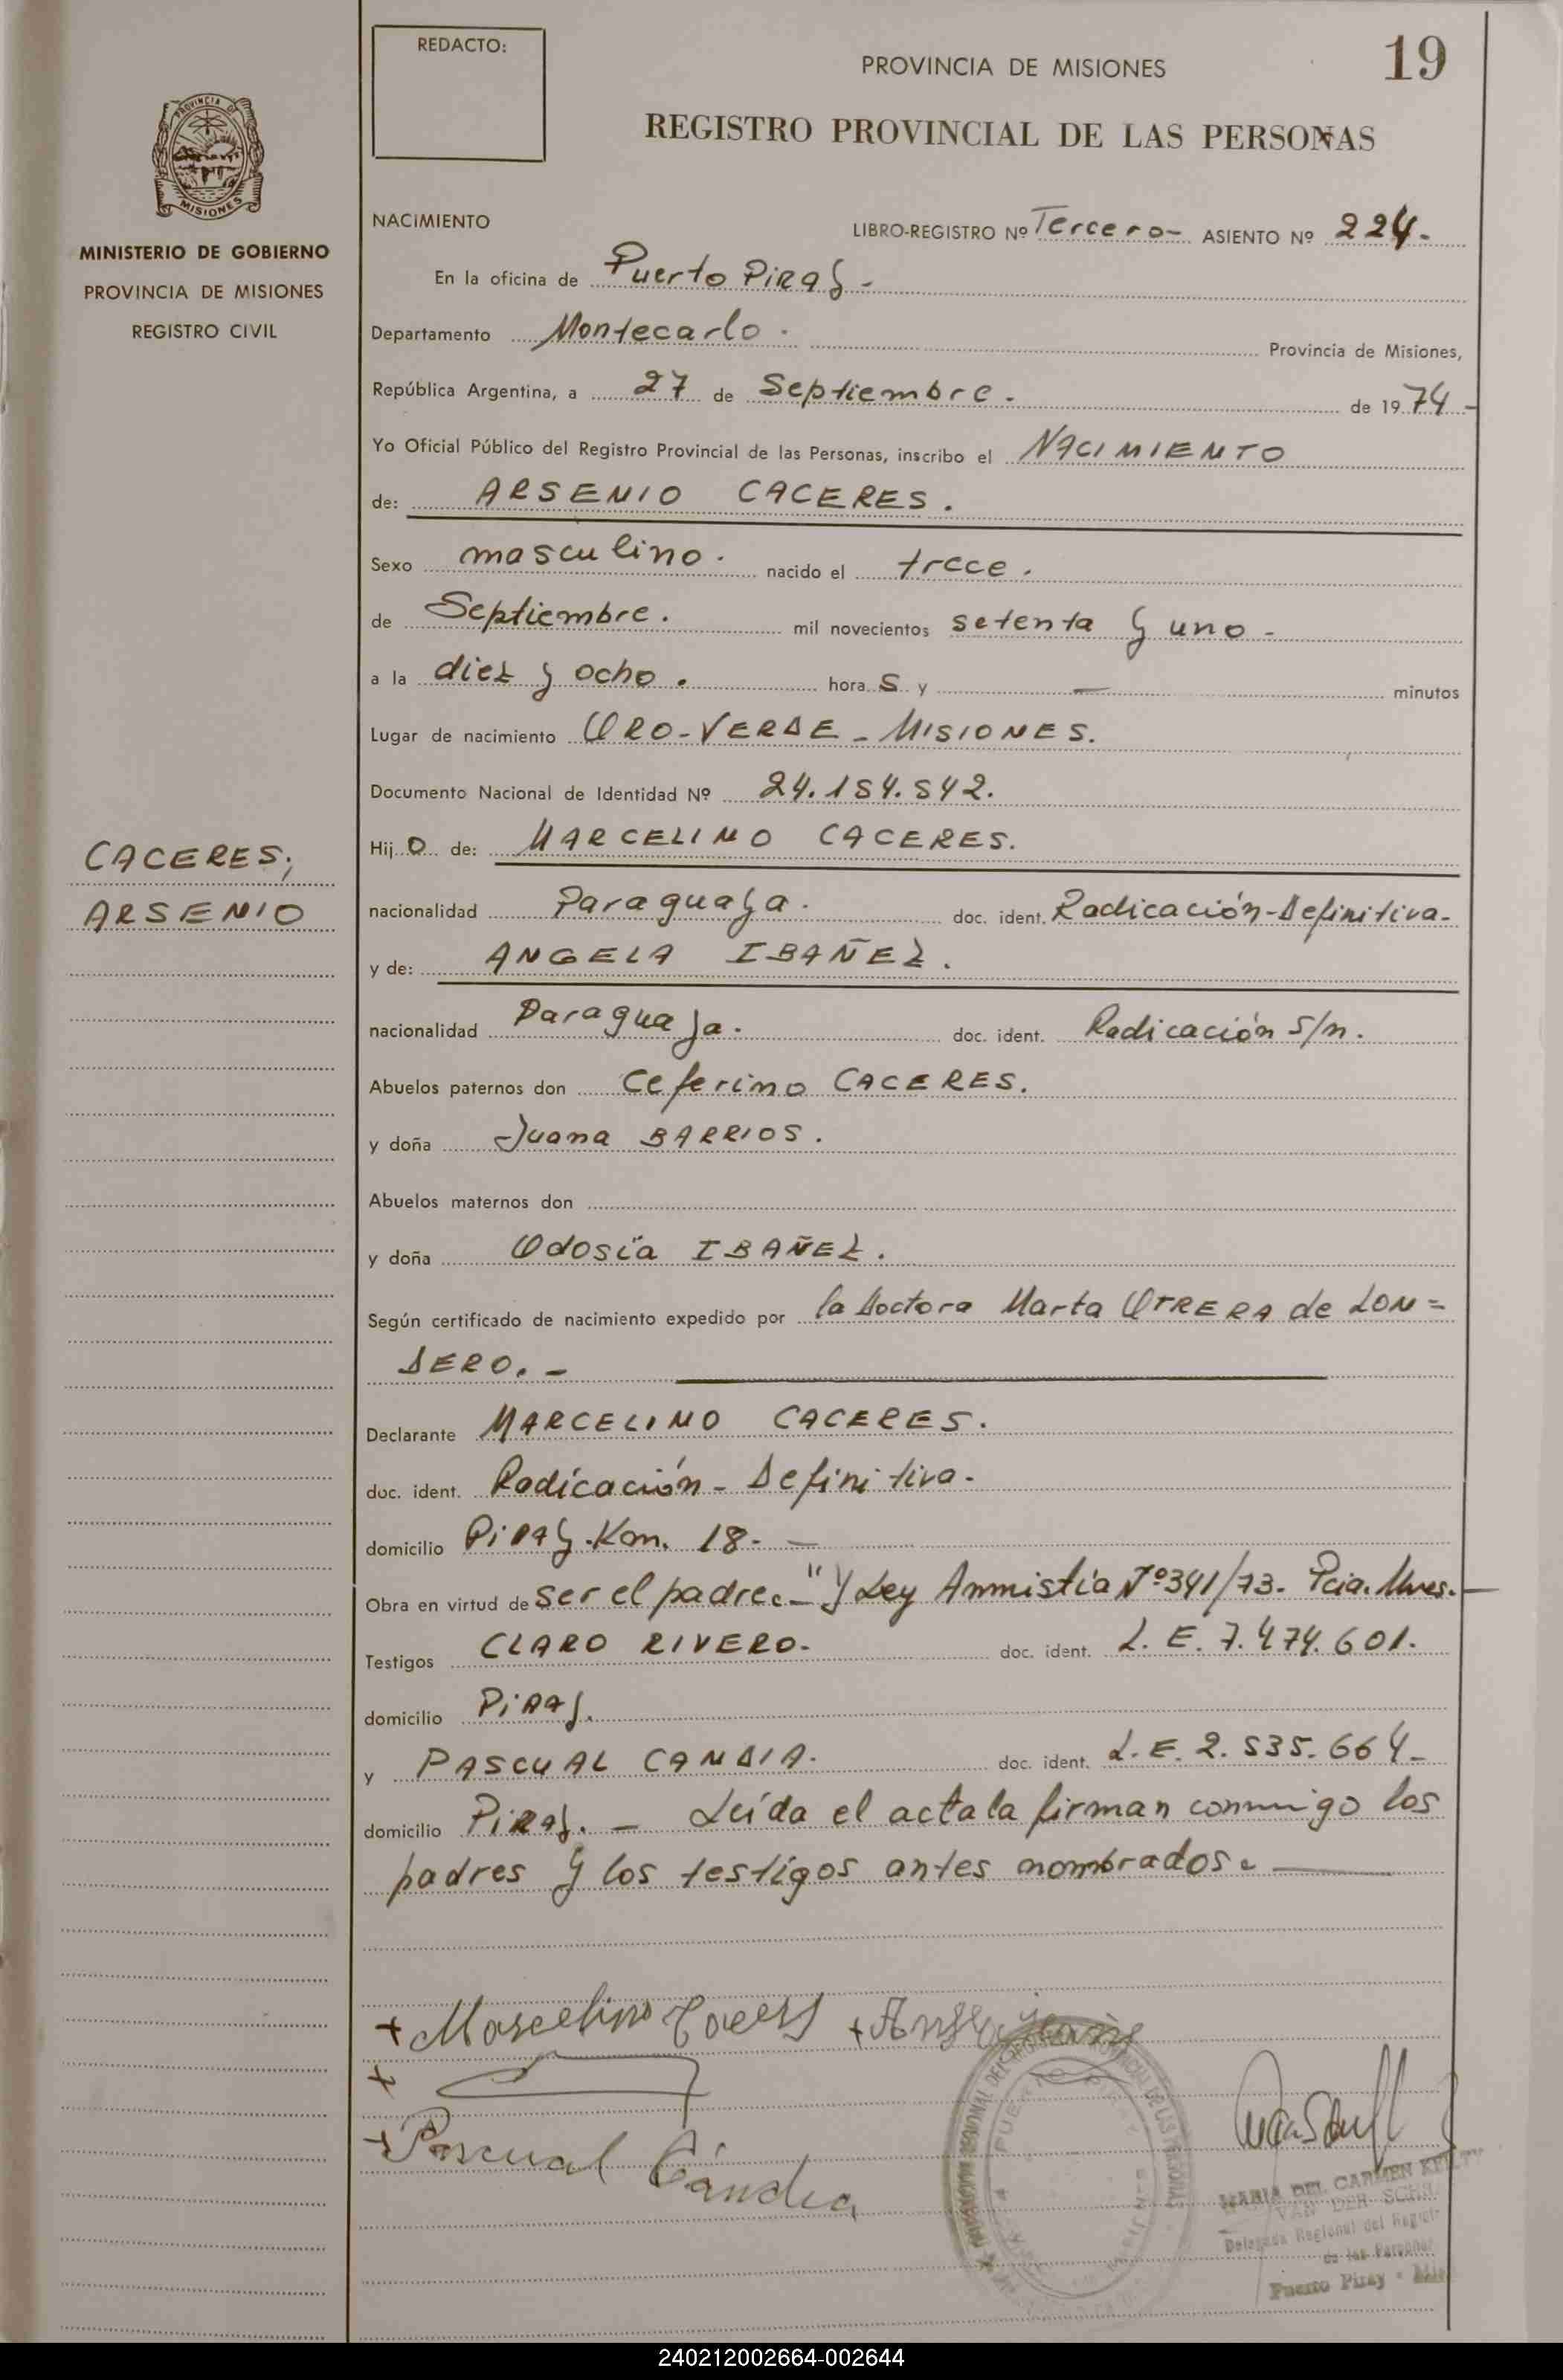 REDACTO:
PROVINCIA DE MISIONES
19
REGISTRO PROVINCIAL DE LAS PERSONAS
PROVINCIA DE
MISIONES
MINISTERIO DE GOBIERNO
PROVINCIA DE MISIONES
REGISTRO CIVIL
NACIMIENTO
LIBRO-REGISTRO Nº Tercero- ASIENTO Nº 224.
En la oficina de Puerto PiRay -
Departamento Montecarlo. Provincia de Misiones,
República Argentina, a 27 de Septiembre. de 1974-
Yo Oficial Público del Registro Provincial de las Personas, inscribo el NACIMIENTO
de: ARSENIO CACERES.
Sexo masculino. nacido el trece.
de Septiembre. mil novecientos setenta y uno -
a la diez y ocho. hora s y — minutos
Lugar de nacimiento ORO-VERDE - MISIONES.
Documento Nacional de Identidad Nº 24.154.542.
CACERES,
ARSENIO
Hij o de: MARCELINO CACERES.
nacionalidad Paraguaya. doc. ident. Radicación-Definitiva-
y de: ANGELA IBAÑEZ.
nacionalidad Paraguaya. doc. ident. Radicación S/n.
Abuelos paternos don Ceferino CACERES.
y doña Juana BARRIOS.
Abuelos maternos don
y doña Odosia IBAÑEZ.
Según certificado de nacimiento expedido por la Doctora Marta UTRERA de LON=
DERO. -
Declarante MARCELINO CACERES.
doc. ident. Radicación - Definitiva.
domicilio PiRAy. Km. 18. —
Obra en virtud de ser el padre.-" y Ley Ammistía Nº341/73. Pcia. Mnes.—
Testigos CLARO RIVERO. doc. ident. L. E. 7.474.601.
domicilio PiRAy.
y PASCUAL CANDIA. doc. ident. L.E. 2.535.664-
domicilio PiRAy. — Leída el acta la firman conmigo los
padres y los testigos antes nombrados. —
+ Marcelino Caceres + Angela
+
+ Pascual Cándia
MARIA DEL CARMEN
VAN DER
Delegada Regional del Registro
de las Personas
Puerto Piray -
240212002664-002644